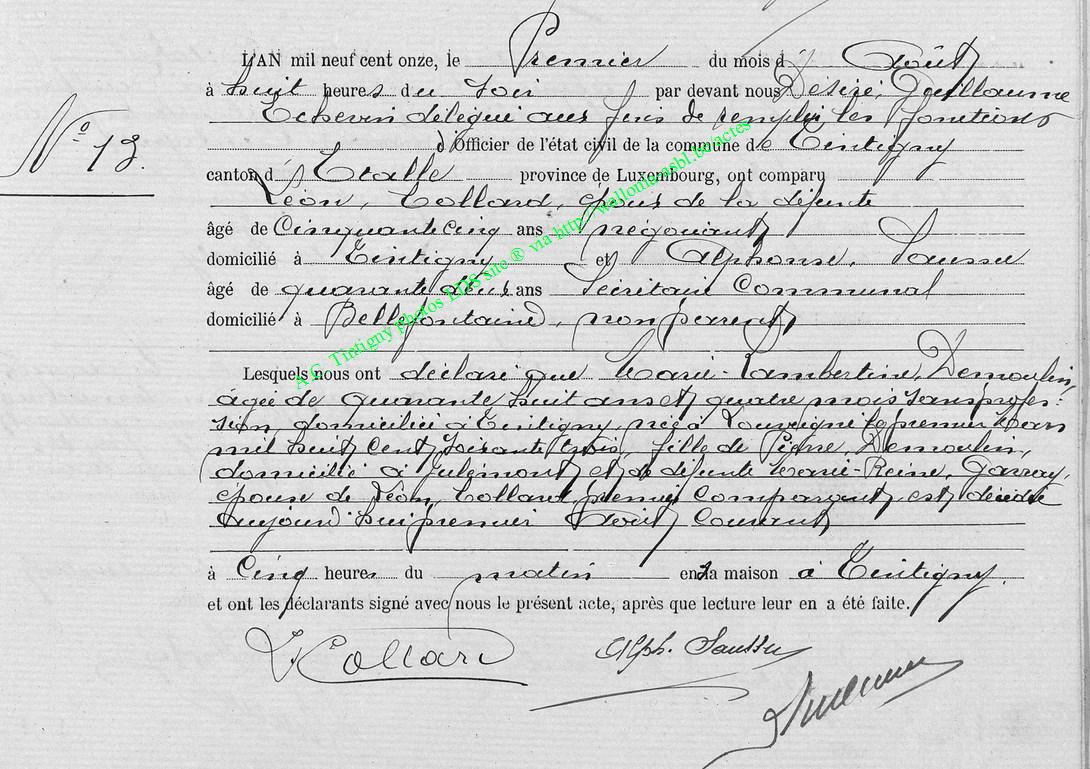 L'AN mil neuf cent onze, le Premier du mois d' Août
à huit heures du soir par devant nous Désiré, Guillaume
Echevin délégué aux fins de remplir les fonctions
N° 13.
d'Officier de l'état civil de la commune de Tintigny
canton d' Etalle province de Luxembourg, ont comparu
Léon, Collard, époux de la défunte
âgé de Cinquante cinq ans négociant
domicilié à Tintigny et Alphonse, Sausu
âgé de quarante deux ans Secrétaire Communal
domicilié à Bellefontaine, non parent
Lesquels nous ont déclaré que Marie-Lambertine, Demoulin,
agée de quarante huit ans et quatre mois sans profes-
sion, domiciliée à Tintigny, née à Louveigné le premier Mars
mil huit cent soixante trois, fille de Pierre Demoulin,
domicilié à Julémont et de défunte Marie-Reine, Garray,
épouse de Léon, Collard, premier comparant, est décédée
aujourd'hui premier Août courant
à Cinq heures du matin en sa maison à Tintigny.
et ont les déclarants signé avec nous le présent acte, après que lecture leur en a été faite.
L Collard Alph. Saussu
A.C. Tintigny photos LDS site ® via http://wallonia-asbl.be/actes